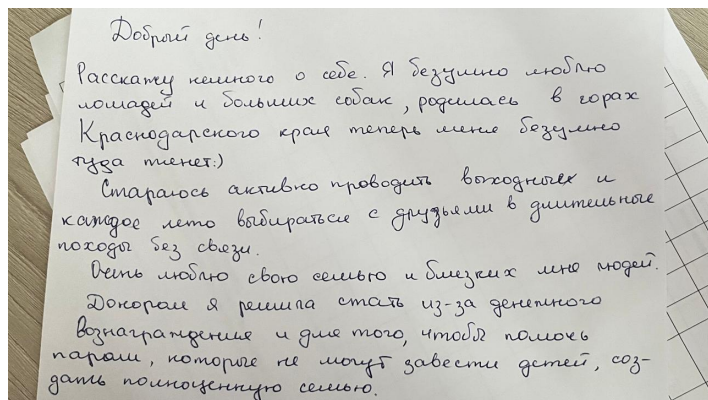 Добрый день!
Расскажу немного о себе. Я безумно люблю
лошадей и больших собак, родилась в горах
Краснодарского края теперь меня безумно
туда тянет:)
Стараюсь активно проводить выходные и
каждое лето выбираться с друзьями в длительные
походы без связи.
Очень люблю свою семью и близких мне людей.
Донором я решила стать из-за денежного
вознаграждения и для того, чтобы помочь
парам, которые не могут завести детей, соз-
дать полноценную семью.